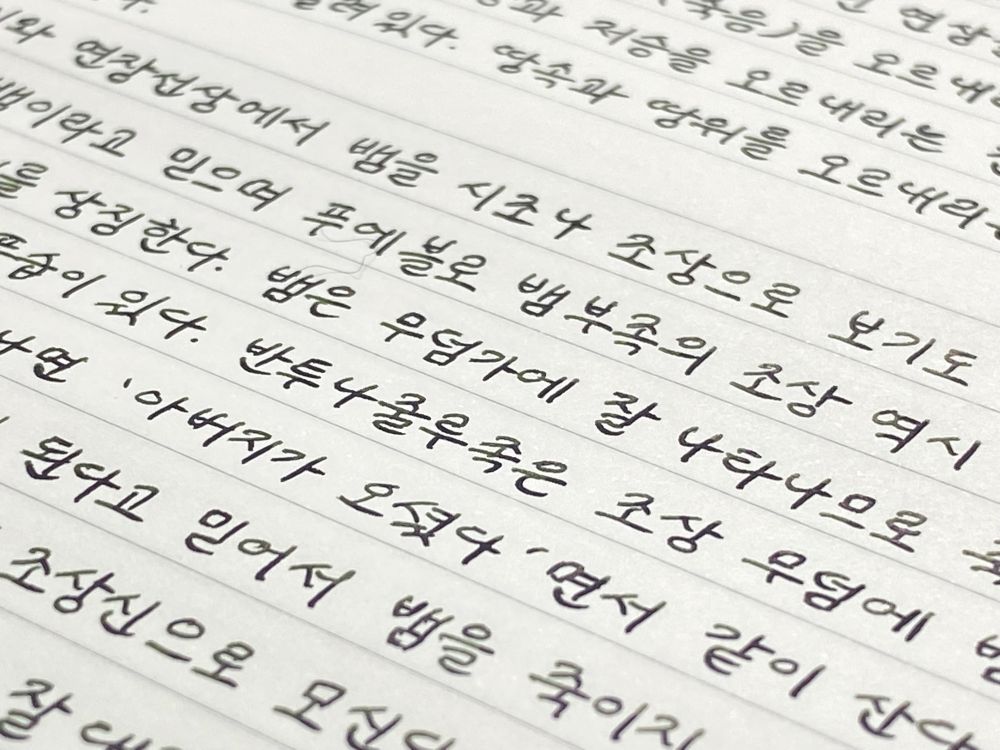 연상
(죽음)을 오르내
과 저승을 오르내리는
려있다. 땅속과 땅위를 오르내리는
와 연장선상에서 뱀을 시조나 조상으로 보기도
뱀이라고 믿으며 푸에블로 뱀부족의 조상 역시
를 상징한다. 뱀은 무덤가에 잘 나타나므로
풍습이 있다. 반투나줄루족은 조상 무덤에 뱀
나면 '아버지가 오셨다'면서 같이 산다
된다고 믿어서 뱀을 죽이지
조상신으로 모신다
잘